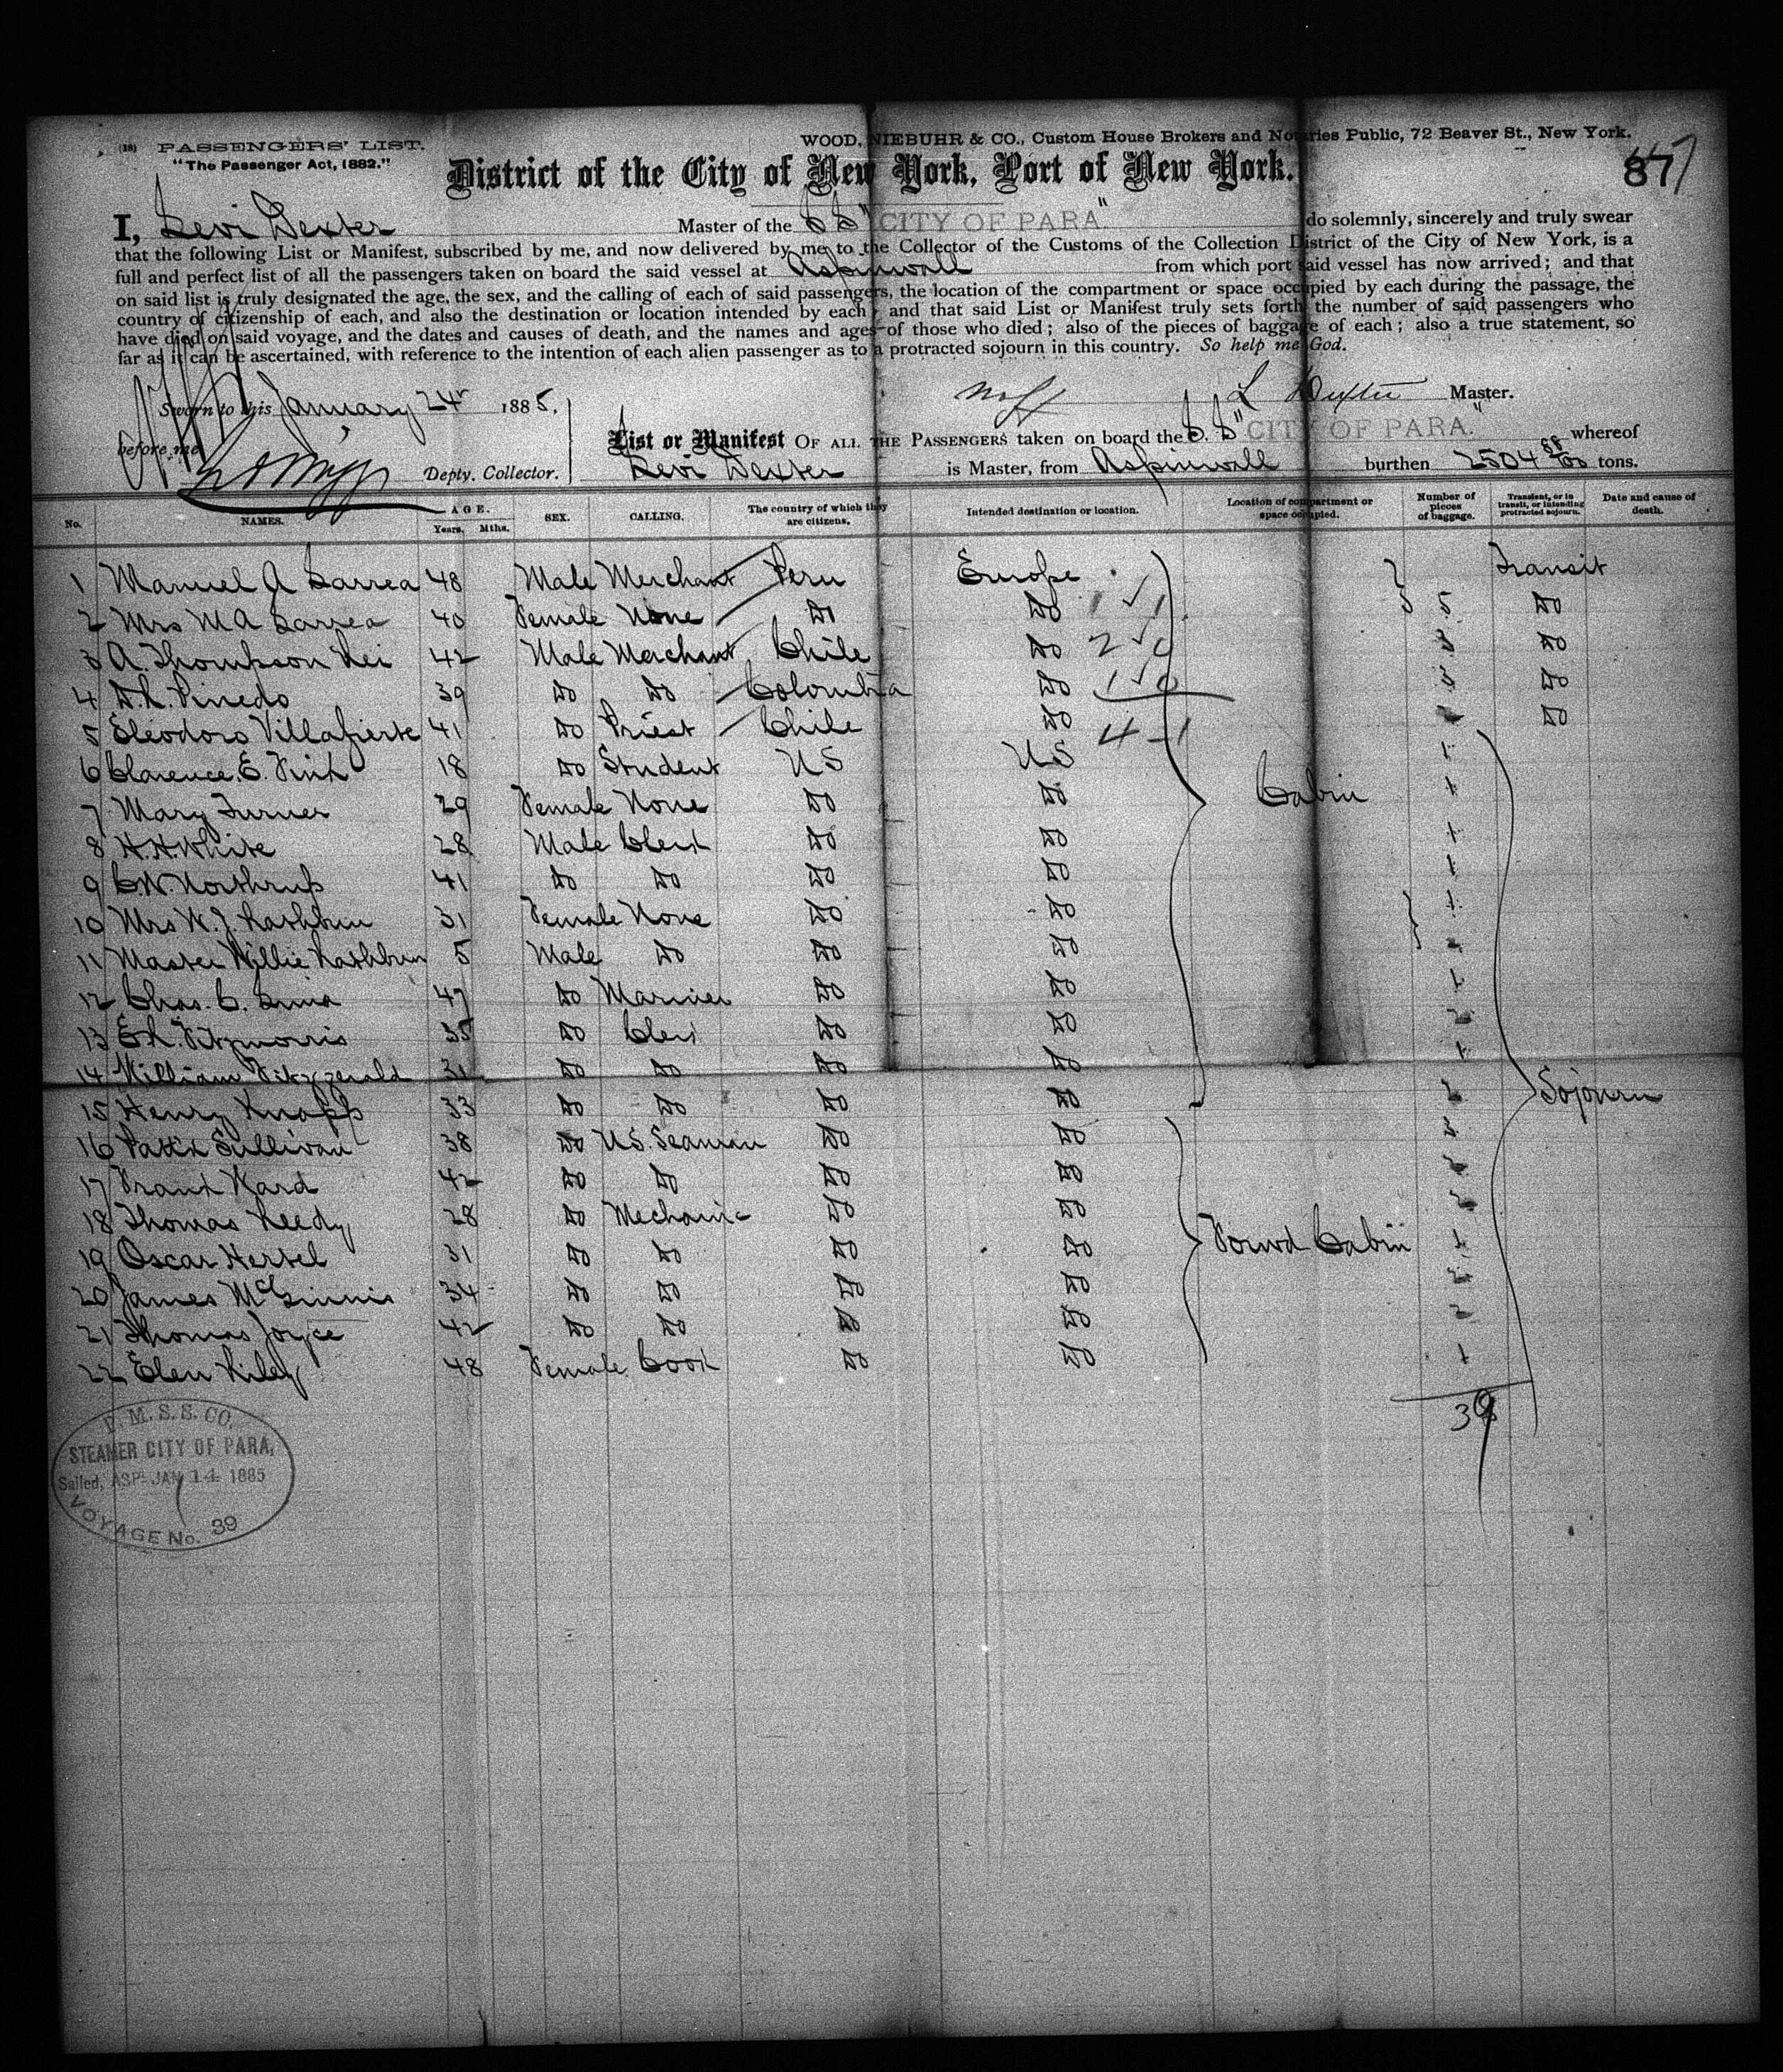 (18) PASSENGERS' LIST.
"The Passenger Act, 1882."
WOOD, NIEBUHR & CO., Custom House Brokers and Notaries Public, 72 Beaver St., New York.
District of the City of New York, Port of New York.
87
I, Levi Dexter Master of the SS "CITY OF PARA" do solemnly, sincerely and truly swear
that the following List or Manifest, subscribed by me, and now delivered by me to the Collector of the Customs of the Collection District of the City of New York, is a
full and perfect list of all the passengers taken on board the said vessel at Aspinwall from which port said vessel has now arrived; and that
on said list is truly designated the age, the sex, and the calling of each of said passengers, the location of the compartment or space occupied by each during the passage, the
country of citizenship of each, and also the destination or location intended by each; and that said List or Manifest truly sets forth the number of said passengers who
have died on said voyage, and the dates and causes of death, and the names and ages of those who died; also of the pieces of baggage of each; also a true statement, so
far as it can be ascertained, with reference to the intention of each alien passenger as to a protracted sojourn in this country. So help me God.
Sworn to this January 24 1885,
L Dexter Master.
before me
Depty. Collector.
List or Manifest OF ALL THE PASSENGERS taken on board the S. S "CITY OF PARA." whereof
Levi Dexter is Master, from Aspinwall burthen 2504 88/100 tons.
No. NAMES. AGE. Years. Mths. SEX. CALLING. The country of which they are citizens. Intended destination or location. Location of compartment or space occupied. Number of pieces of baggage. Transient, or in transit, or intending protracted sojourn. Date and cause of death.
1 Manuel A Larrea 48 Male Merchant Peru Europe Transit
2 Mrs M A Larrea 40 Female None Do Do 5 Do
3 A. Thompson 42 Male Merchant Chile Do Do
4 Pinedo 39 Do Do Colombia Do Do
5 Eleodoro Villafuerte 41 Do Priest Chile Do Do
6 Clarence. E. 18 Do Student US US 1
7 Mary Turner 29 Female None Do Do 1
8 H. H. White 28 Male Clerk Do Do 1
9 C. W. Northrup 41 Do Do Do Do 1
10 Mrs W. J. Rathbun 31 Female None Do Do 1
11 Master Willie Rathbun 5 Male Do Do Do
12 Chas. C. 47 Do Mariner Do Do 1
13 Fitzmorris 35 Do Clerk Do Do 2
14 William Fitzgerald 31 Do Do Do Do 1
15 Henry Knapp 33 Do Do Do Do 2
16 Patk Sullivan 38 Do US. Seaman Do Do
17 Frank Ward 42 Do Do Do Do 2
18 Thomas Reedy 28 Do Mechanic Do Do 2
19 Oscar Hertel 31 Do Do Do Do 1
20 James McGinnis 34 Do Do Do Do 2
21 Thomas Joyce 42 Do Do Do Do 2
22 Elen Riley 48 Female Cook Do Do 1
Cabin
Forwd Cabin
Sojourn
39
P. M. S. S. CO.
STEAMER CITY OF PARA,
Sailed, ASPL JAN 14 1885
VOYAGE No. 39